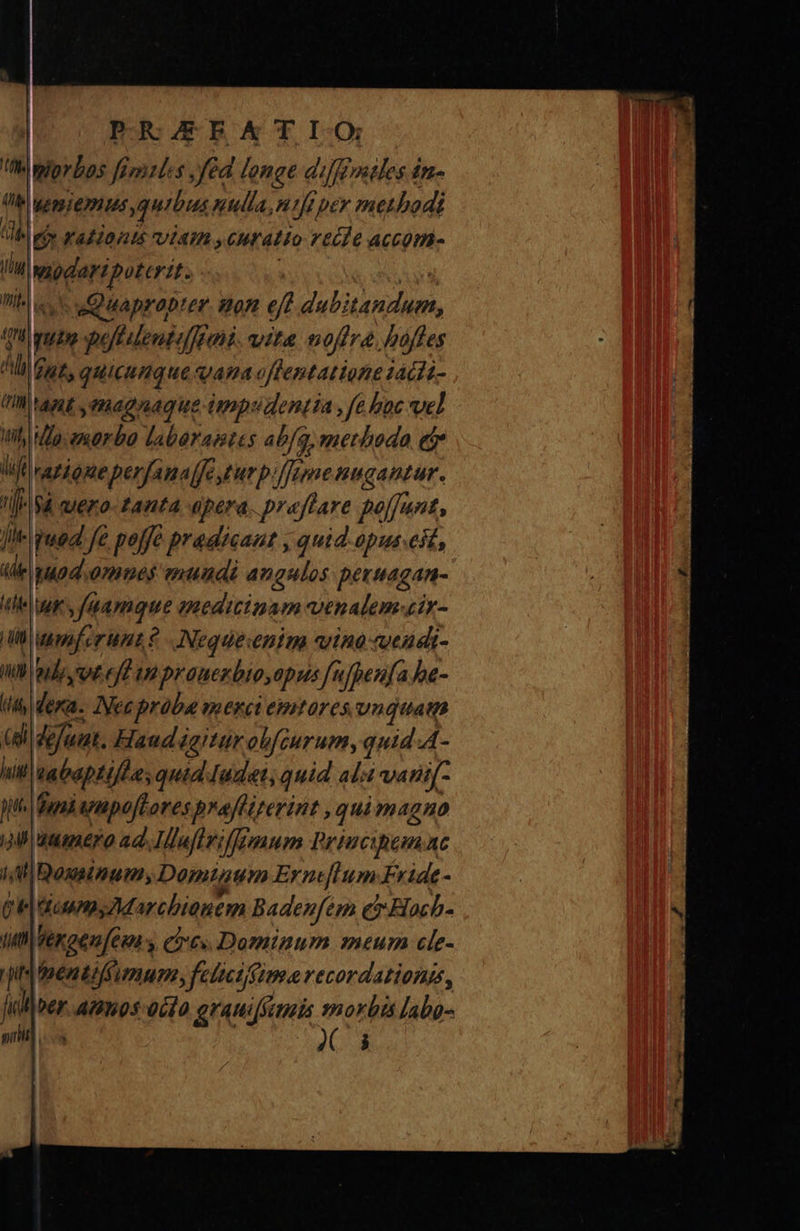 PRÆFATIO.
morbos similes, sed longe dissimiles in-
ueniemus, quibus nulla, nisi per methodi
& rationis viam, curatio recte accom-
modari poterit.
Quapropter non est dubitandum,
quin pestilentissimi vitæ nostræ hostes
sint, quicunque vana ostentatione iacti-
tant, magnaque impudentia, se hoc vel
illo morbo laborantes absq; methodo &
ratione persanasse, turpissime nugantur.
Si vero tanta opera præstare possunt,
quod se posse prædicant, quid opus est,
quod omnes mundi angulos peruagan-
tur, suamque medicinam venalem cir-
cumferunt? Neque enim vino vendi-
bili, vt est in prouerbio, opus suspensa he-
dera. Nec probæ merci emtores vnquam
desunt. Haud igitur obscurum, quid A-
nabaptistæ, quid Iudæi, quid alii vanis-
simi impostores præstiterint, qui magno
numero ad Illustrissimum Principem ac
Dominum, Dominum Ernestum Fride-
ricum, Marchionem Badensem & Hoch-
bergensem, &c. Dominum meum cle-
mentissimum, felicissimæ recordationis,
per annos octo grauissimis morbis labo-
)( 3